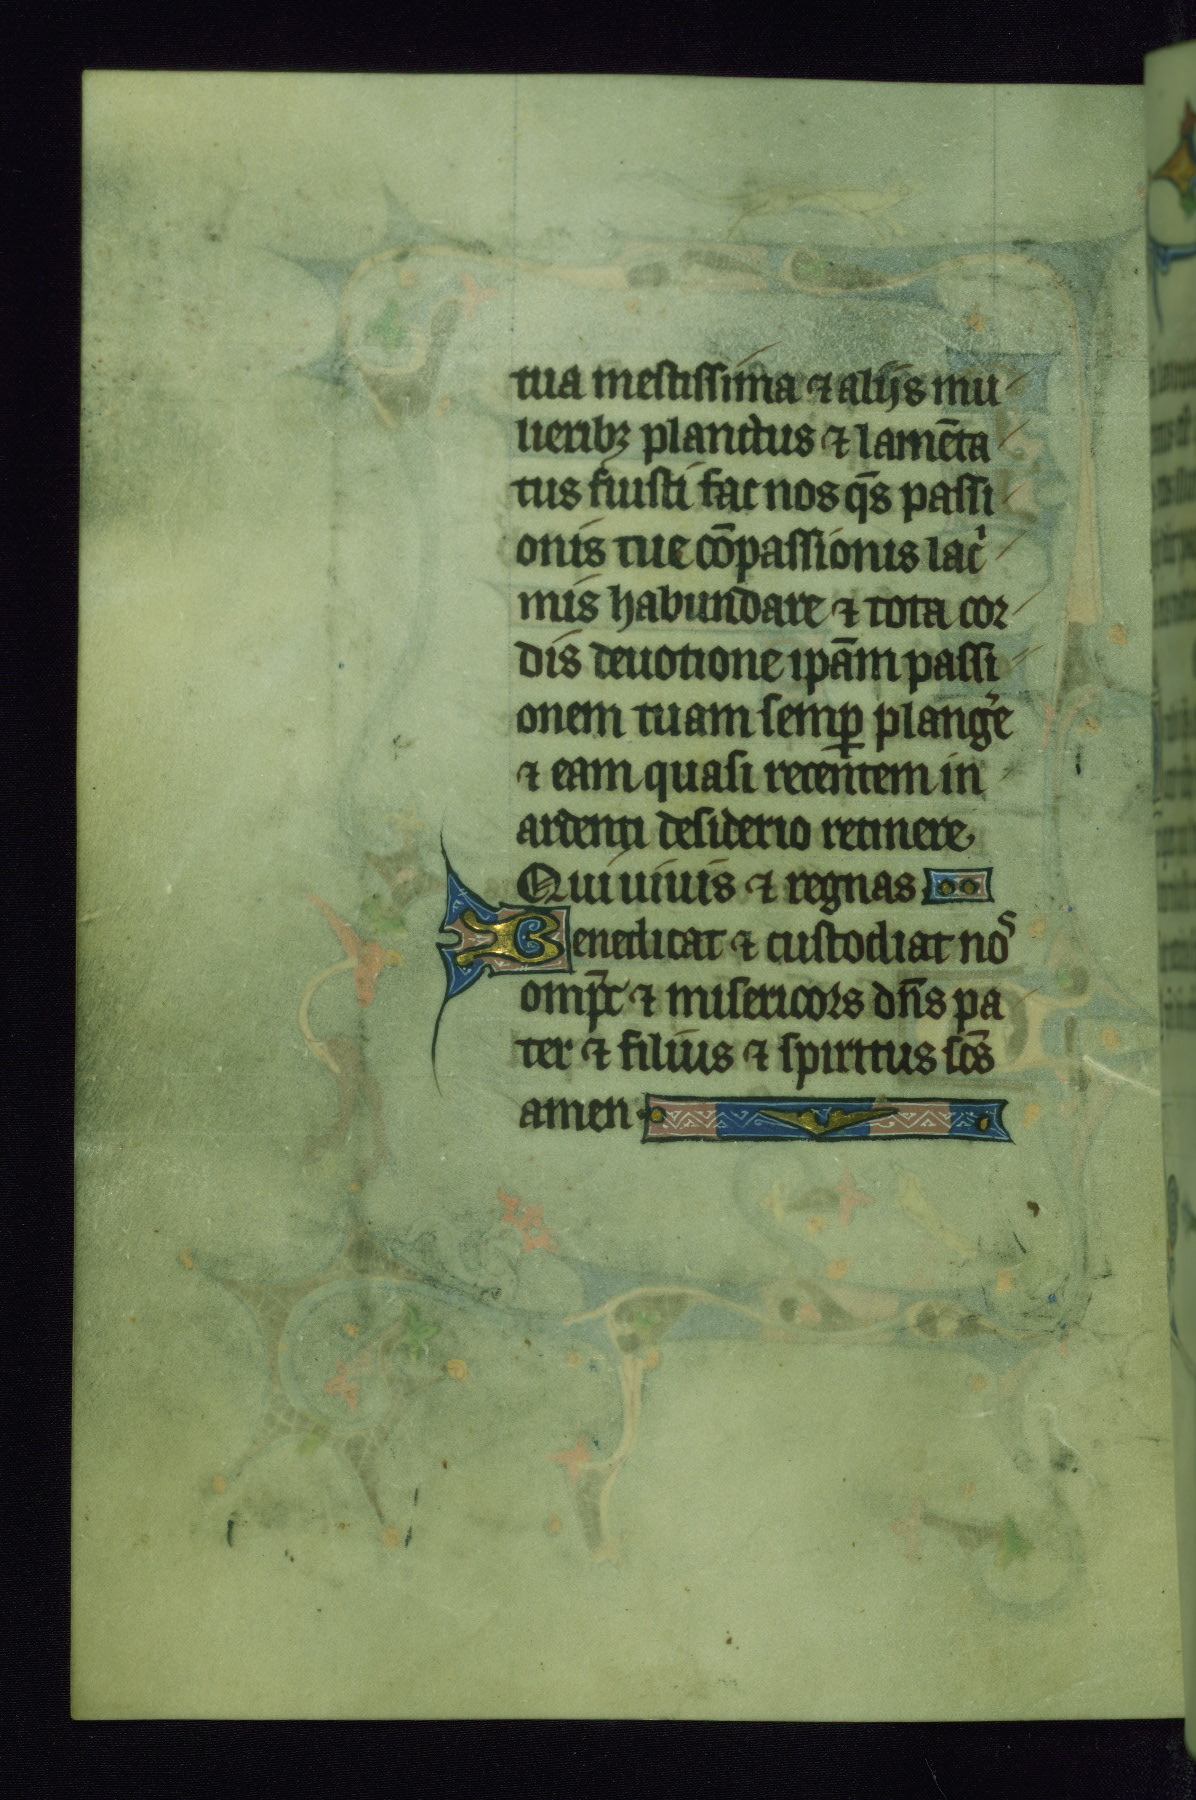 tua mestissima ⁊ alijs mu
lieribꝫ planctus ⁊ lamēta
tus fuisti fac nos q̄s passi
onis tue cōpassionis lac̓
mis habundare ⁊ tota cor
dis deuotione ip̄am passi
onem tuam semꝑ plang̓e
⁊ eam quasi recentem in
ardenti desiderio retinere
Qui uiuis ⁊ regnas
Benedicat ⁊ custodiat nos
omp̄c ⁊ misericors dn̄s pa
ter ⁊ filius ⁊ spiritus sc̄s
amen